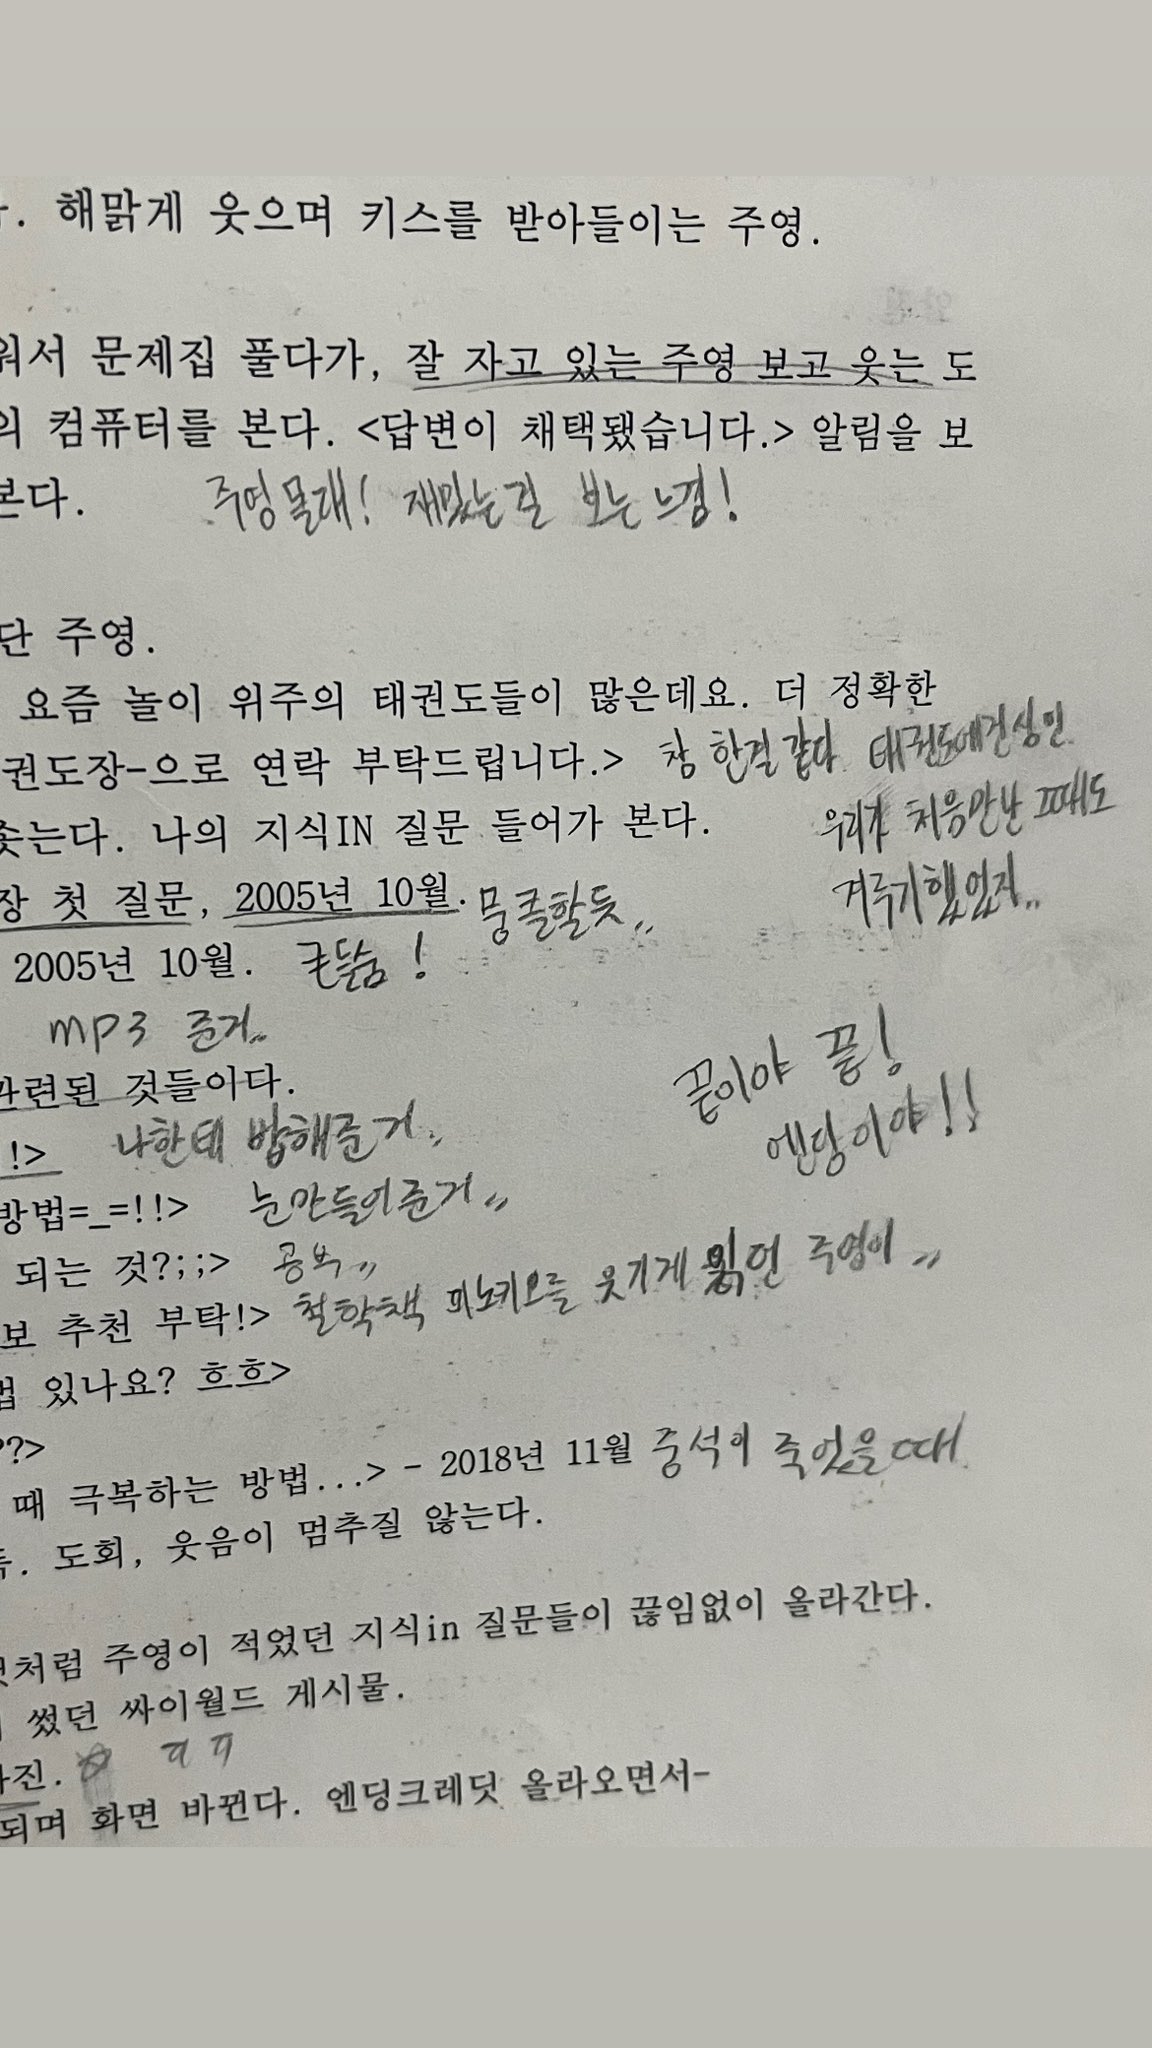 . 해맑게 웃으며 키스를 받아들이는 주영.
워서 문제집 풀다가, 잘 자고 있는 주영 보고 웃는 도
의 컴퓨터를 본다. <답변이 채택됐습니다.> 알림을 보
본다. 주영몰래! 재밌는걸 보는 느낌!
단 주영.
요즘 놀이 위주의 태권도들이 많은데요. 더 정확한
권도장-으로 연락 부탁드립니다.> 참 한결같다 태권도에진심인
좇는다. 나의 지식IN 질문 들어가 본다. 우리가 처음만난 때도
장 첫 질문, 2005년 10월. 뭉클할듯,, 겨루기했었지,,
2005년 10월. 큰숨!
mp3 준거..
관련된 것들이다. 끝이야 끝!
!> 나한테 밥해준거.. 엔딩이야!!
방법=_=!!> 눈만들어준거,,
되는 것?;;> 공부,,
보 추천 부탁!> 철학책 피노키오를 웃기게 읽던 주영이,,
법 있나요? 흐흐>
??>
때 극복하는 방법...> - 2018년 11월 중석이 죽었을때
. 도회, 웃음이 멈추질 않는다.
처럼 주영이 적었던 지식in 질문들이 끊임없이 올라간다.
썼던 싸이월드 게시물.
사진. ㅠㅠ
되며 화면 바뀐다. 엔딩크레딧 올라오면서-